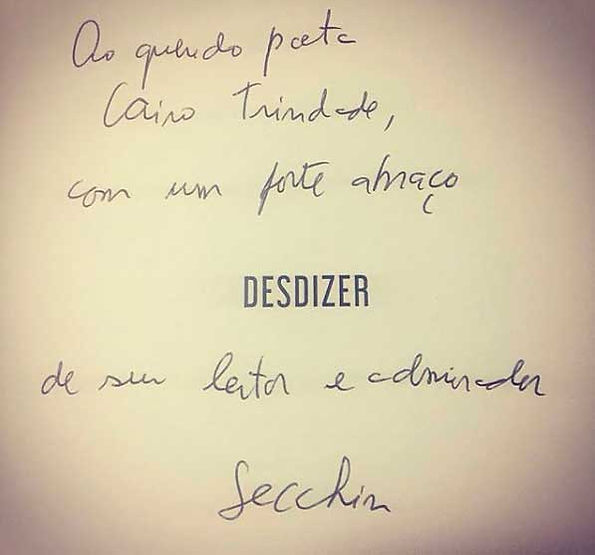 Ao querido poeta
Cairo Trindade,
com um forte abraço
DESDIZER
de seu leitor e admirador
Secchin